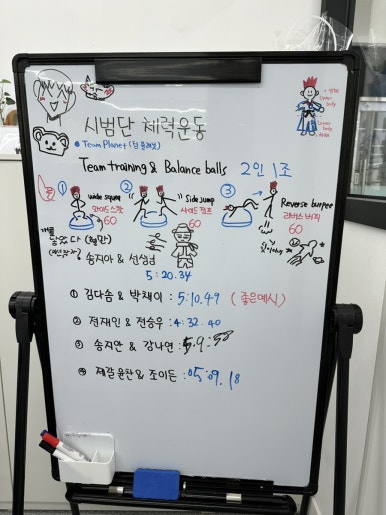 시범단 체력운동
Team Planet (팀 플래닛)
Team training & Balance balls 2인 1조
① wide squat 와이드스쿼트 60
② Side jump 사이드점프 60
③ Reverse burpee 리버스 버피 60
송지아 & 선생님
5:20.34
① 김다솜 & 박채이 : 5:10.49 (좋은예시)
② 전재인 & 전승우 : 4:32.40
③ 송지안 & 강나연 : 5.9:58
④ 제갈윤찬 & 조이든 : 05:09.18